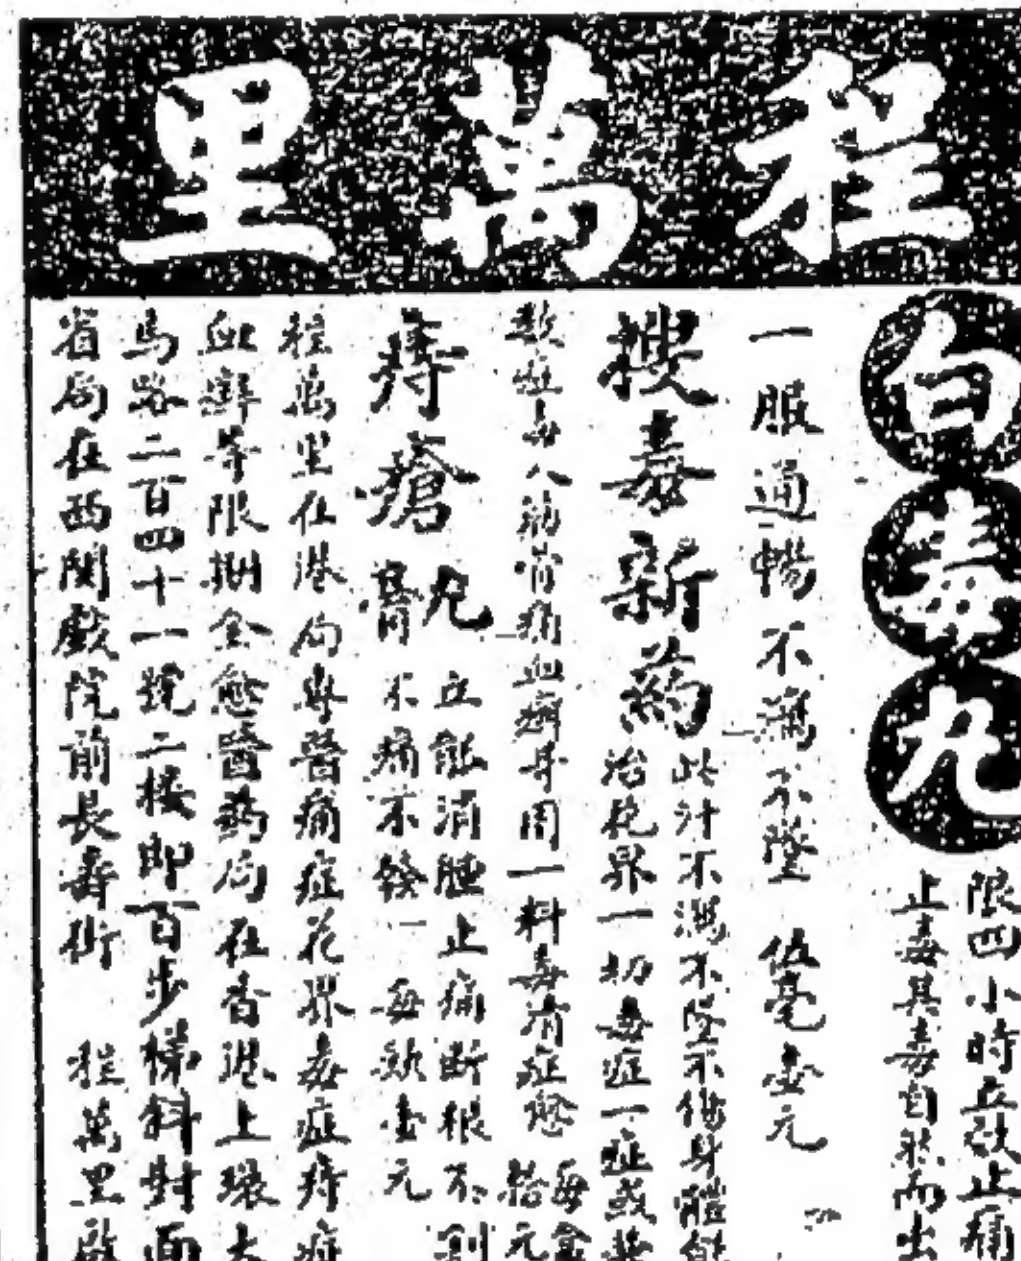 程萬里
白毒丸
限四小時立效止痛
止毒其毒自然而出
一服通暢不瀉不墜 伍毫 壹元
搜毒新药
此汁不瀉不墜不傷身體能
治花界一切毒症一症或
數症女人幼骨痛血癬等用一料毒清症愈
每盒
拾元
痔瘡丸膏
立能消腫止痛断根不割
不痛不發 每欵壹元
程萬里在港局專醫痛症花界毒症痔症
血癬等限捌全愈醫药局在香港上環大
馬路二百四十一號二楼即百步梯斜對面
省局在西関戲院前長壽街 程萬里啟